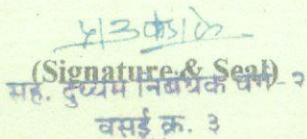 (Signature & Seal)
सह. दुय्यम निबंधक वर्ग - २
वसई क्र. ३